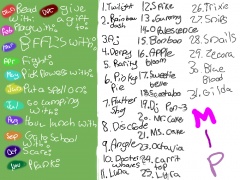 Jan Read with:
Dec give a gift to:
Feb Playing with:
Mar B.F.F.L's with:
Apr Fight:
May Pick flowers with:
Jun Put a spell on:
Jul Go camping with:
Aug have lunch with:
Sep Go to School with:
Oct Scare:
Nov Prank:
1.Twilight
2.Rainbow Dash
3.Pj
4.Derpy
5.Rarity
6.Pinkie Pie
7.Flutter Shy
8.Discode
9.Angle
10.Docter whoves
11.Luna
12.Spike
13.Gummy
14.Opalescence
15.Bonbon
16.Apple bloom
17.Sweetie belle
18.Scootaloo
19.Dj Pon-3
20.Mr.Cake
21.Ms.cake
23.octavia
24.carrit top
25.Lyra
26.Trixie
27.Snips
28.Snails
29.Zecora
30.Blue Blood
31.Gilda
M
I
P